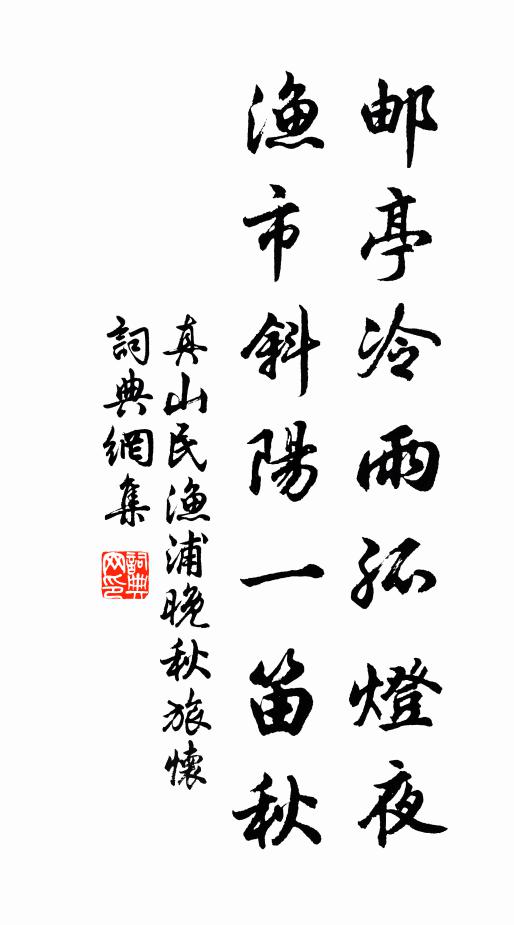 邮亭冷雨孤燈夜
漁市斜陽一笛秋
真山民漁浦晚秋旅懷
詞典網集
詞典网印